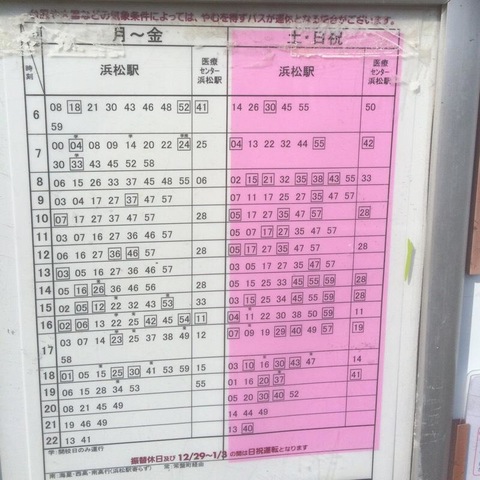 台風や大雪などの気象条件によっては、やむを得ずバスが運休となる場合がございます。
月～金 土・日祝
時刻 浜松駅 医療センター浜松駅 浜松駅 医療センター浜松駅
6 08 18 21 30 43 46 48 52 41 14 26 30 45 55 50
59
7 00 04 08 09 14 20 22 24 25 04 13 22 32 44 55 42
30 33 43 45 52 58
8 06 15 26 33 37 45 48 55 06 02 15 21 32 35 38 43 55 33
9 03 04 17 27 37 47 57 07 11 17 25 27 35 47 57
10 07 17 27 37 47 57 28 05 17 27 35 47 57 28
11 03 07 16 27 36 47 57 05 07 17 27 35 47 57
12 06 16 27 36 46 57 28 05 17 27 35 47 57 28
13 03 05 16 27 36 46 57 03 05 17 27 35 47 57
14 05 16 26 36 46 56 28 05 15 25 33 45 55 59 28
15 02 05 12 22 32 43 53 33 03 15 25 34 45 59 28
16 02 06 13 22 25 42 45 54 11 04 11 22 30 38 50 59 11
17 03 07 14 23 25 37 38 49 12 07 09 19 29 40 49 57 19
58
18 01 05 15 25 30 41 53 59 15 03 10 16 30 43 47 14
19 06 15 28 34 53 55 01 16 20 37 41
20 08 21 45 49 05 20 30 40 52
21 19 46 49 14 44 49
22 13 41 13 40
学:開校日のみ運行 振替休日及び 12/29～1/3 の間は日祝運転となります